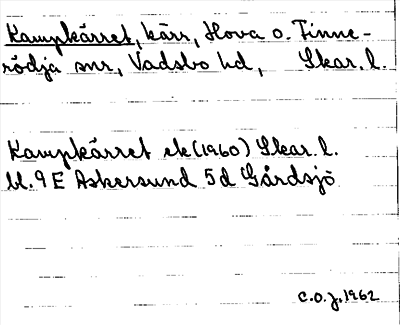 Kampkärret, kärr, Hova o. Finne-
rödja snr, Vadsbo hd, Skar. l.
Kampkärret ek (1960) Skar. l.
bl. 9 E Askersund 5d Gårdsjö
C.O.J. 1962